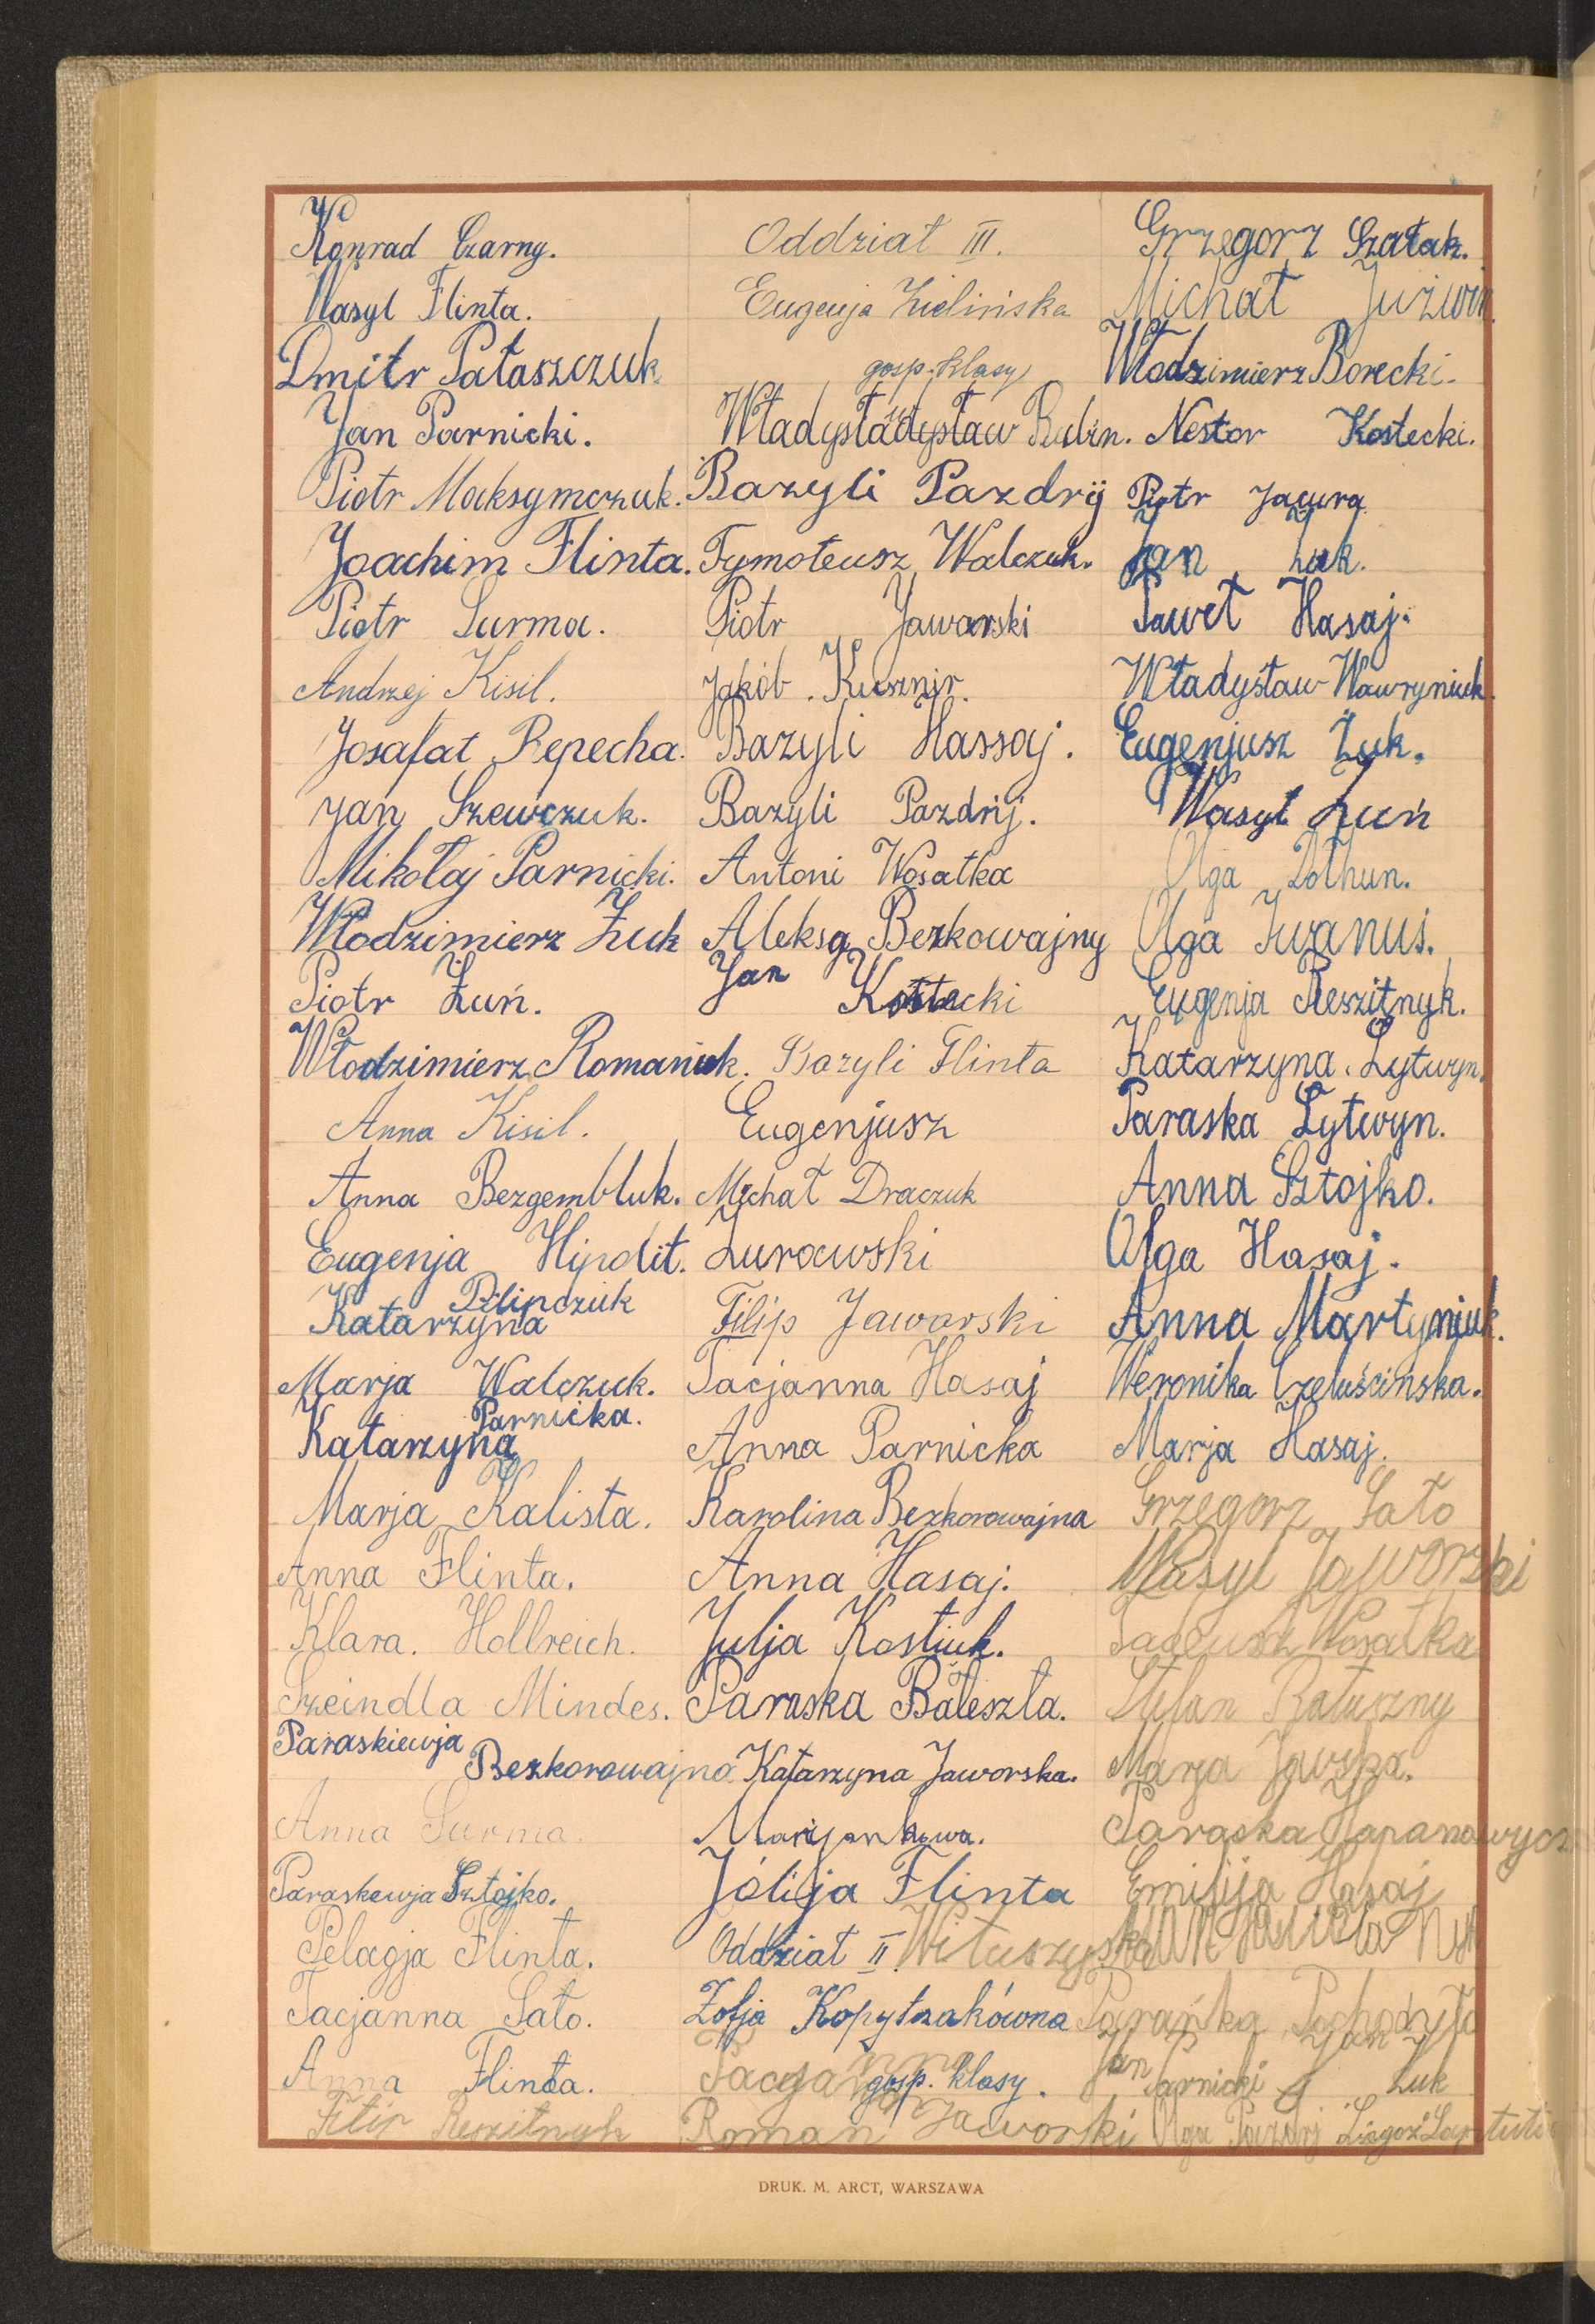 Konrad Czarny.
Wasyl Flinta.
Dmitr Pataszczuk
Jan Parnicki.
Piotr Maksymczuk.
Joachim Flinta.
Piotr Surma.
Andrzej Kisil.
Josafat Repecha.
Jan Szewczuk.
Mikołaj Parnicki.
Włodzimierz Żuk
Piotr Żuń.
Włodzimierz Romaniuk.
Anna Kisil.
Anna Bezgembluk.
Eugenja Hipolit.
Pilipczuk
Katarzyna
Marja Walczuk.
Parnicka.
Katarzyna
Marja Kalista.
Anna Flinta.
Klara. Hollreich.
Szeindla Mindes.
Paraskiewja
Bezkorowajna
Anna Surma.
Paraskewja Sztojko.
Pelagja Flinta.
Tacjanna Sato.
Anna Flinta.
Filip Reszitnyk
Oddział III.
Eugenja Zielińska
gosp. klasy
Władysładysław
Bazyli Pazdrij
Tymoteusz Walczuk.
Piotr Jaworski
Jakób. Kusznir.
Bazyli Hassaj.
Bazyli Pazdrij.
Antoni Wosatka
Aleksa Bezkowajny
Jan Kostecki
Bazyli Flinta
Eugenjusz
Michał Draczuk
Żurawski
Filip Jaworski
Tacjanna Hasaj
Anna Parnicka
Karolina Bezkorowajna
Anna Hasaj.
Julja Kostiuk.
Paraska Bateszta.
Katarzyna Jaworska.
Jólija Flinta
Oddział II.
Zofja Kopytzakówna
gosp. klasy.
Roman Jaworski
Grzegorz Szatak.
Michał
Włodzimierz Borecki.
Nestor Kostecki.
Piotr Jacura
Jan Żuk.
Paweł Hasaj.
Władysław Wawryniuk.
Eugenjusz Żuk.
Wasyl Żuń
Olga
Olga Iwanus.
Eugenja Reszitnyk.
Katarzyna. Lytwyn.
Paraska Lytwyn.
Anna Sztojko.
Olga Hasaj.
Anna Martyniuk.
Weronika Czeluścińska.
Marja Hasaj.
Grzegorz Sato
Wasyl Jaworski
Tadeusz Wosatka
Stefan Ratuszny
Marja
Paraska Hapanowycz
Emilija Hasaj
Jan Parnicki
Jan Żuk
Olga Pazdrij
DRUK. M. ARCT, WARSZAWA